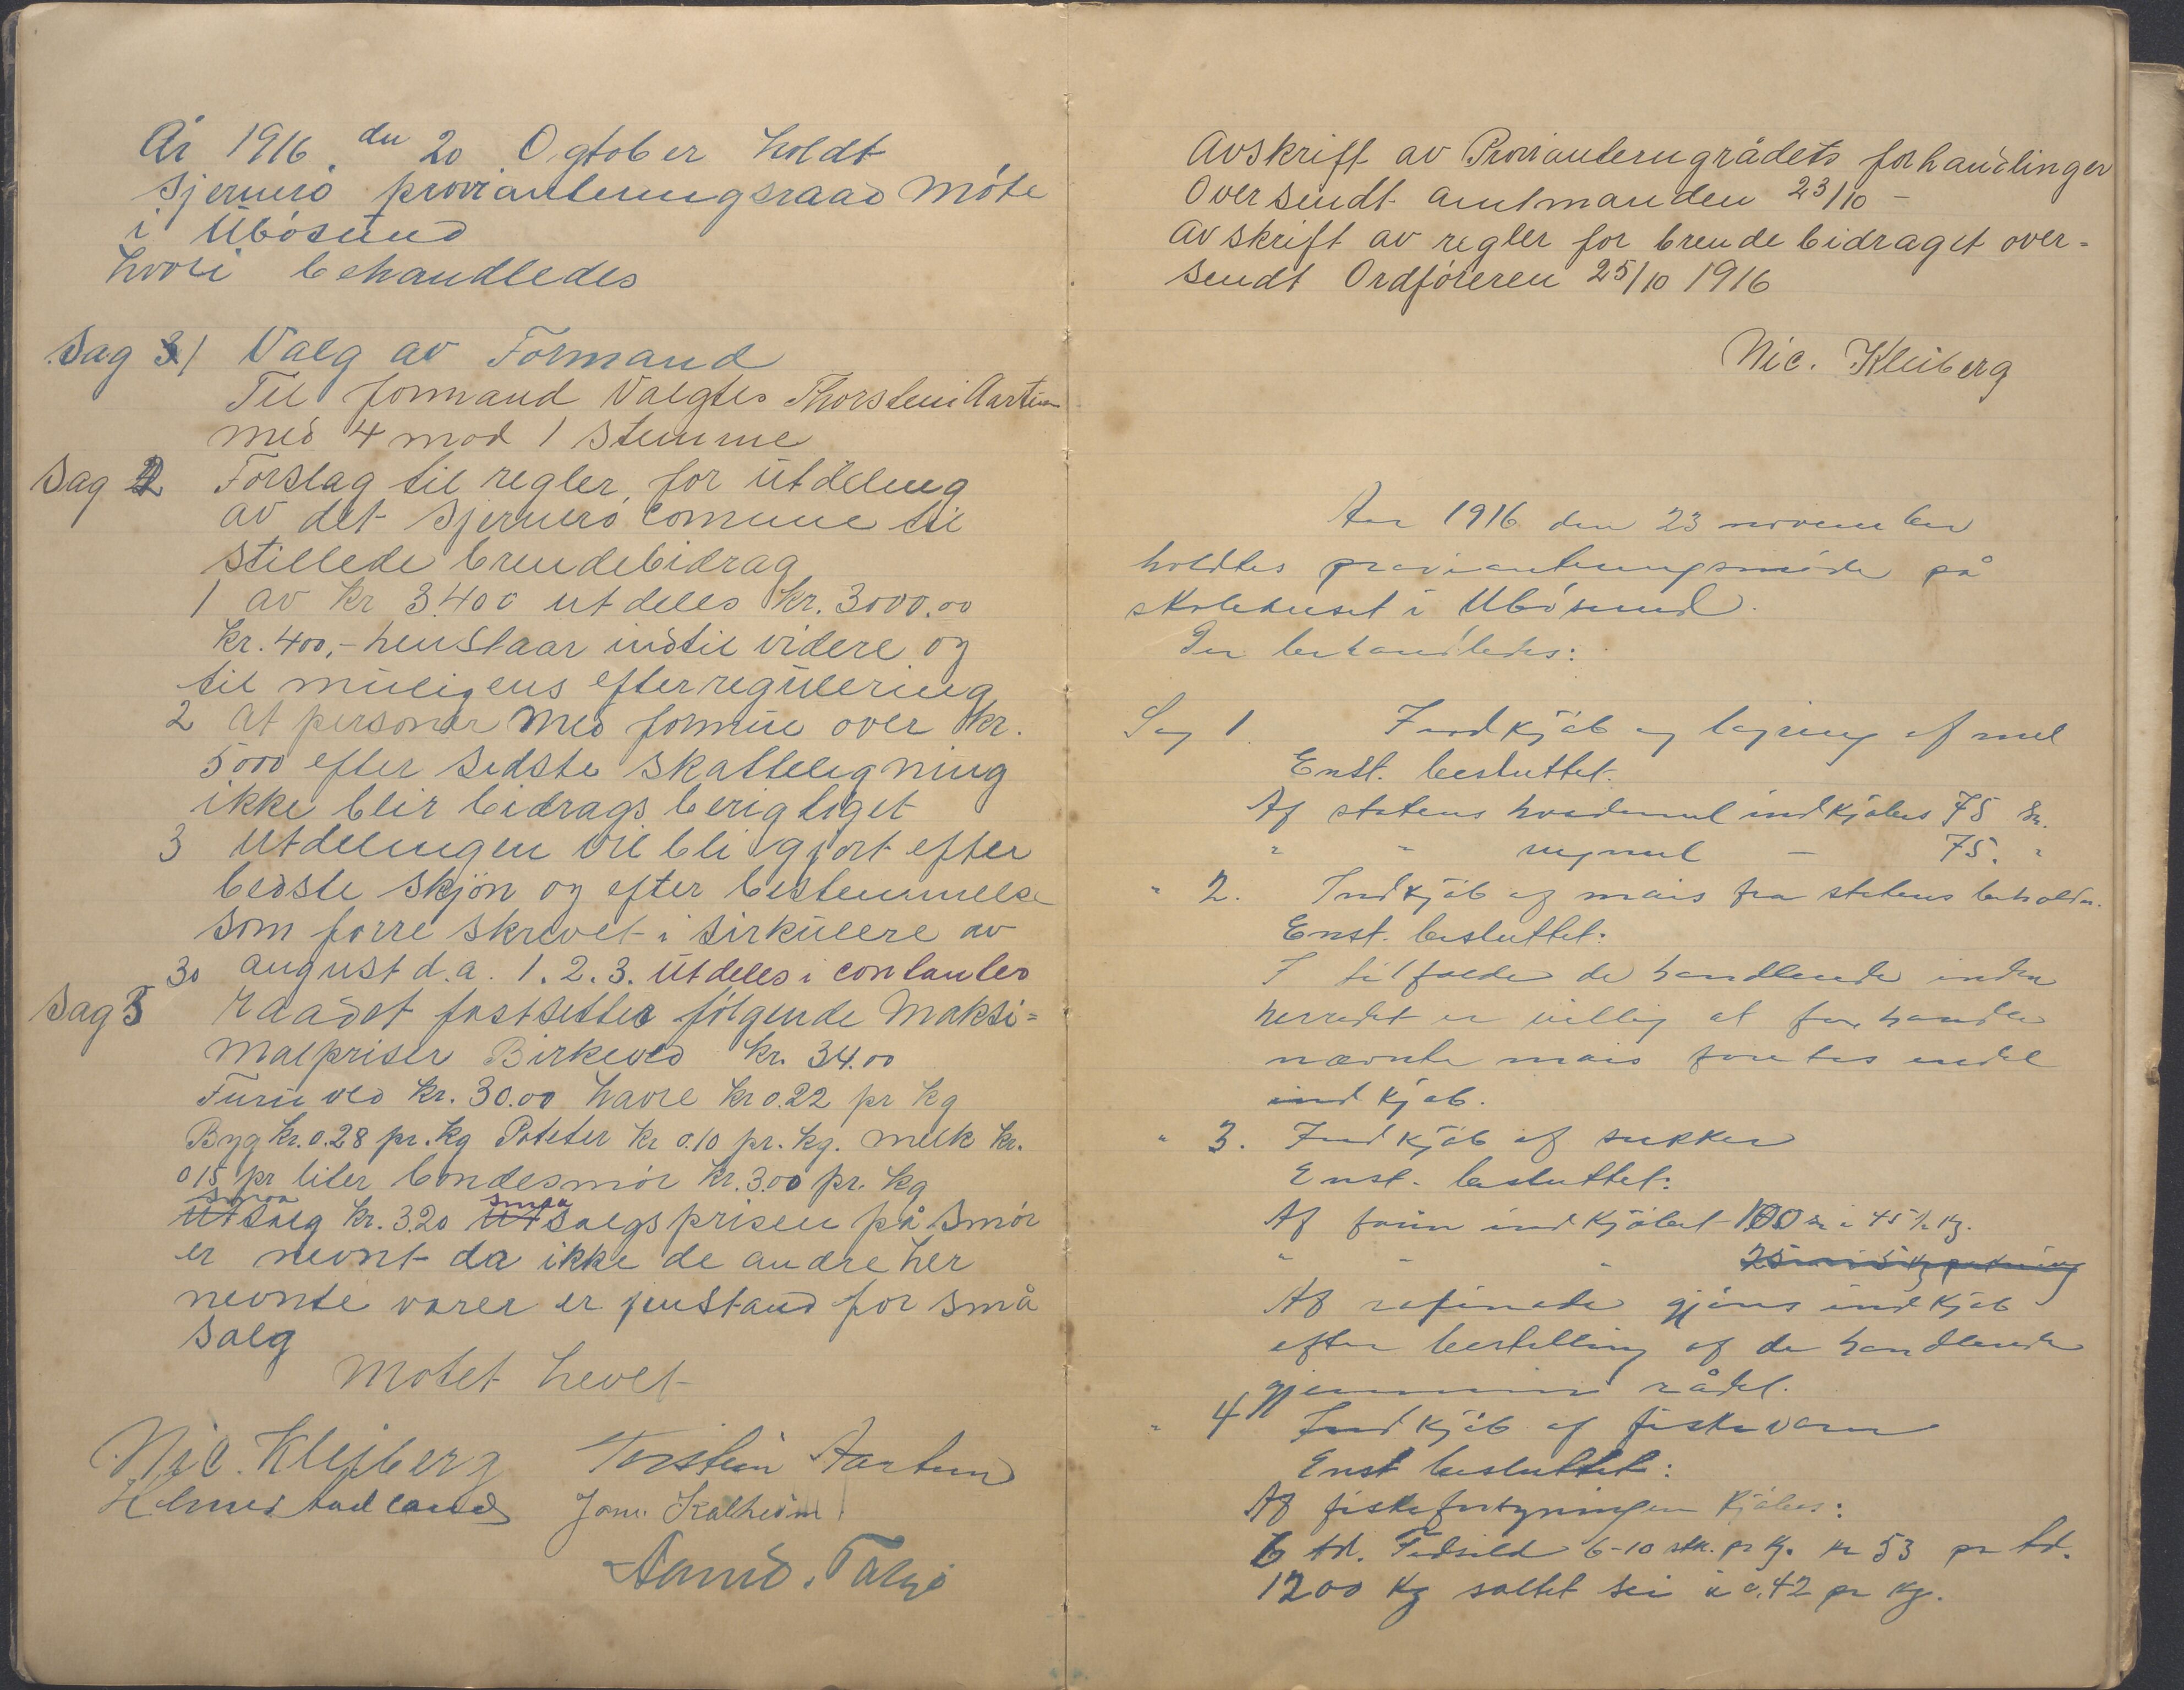 År 1916 den 20 Ogtober holdt
Sjernerø provianteringsraad møte
i Ubøsund
hvori behandledes
Sag 1 Valg av Formand
Til formand Valgtes Thorstein Aartun
med 4 mod 1 stemme
Sag 2 Forslag til regler, for utdeling
av det Sjernerø comune til
stillede brendebidrag
1 av Kr 3400 utdeles Kr. 3000.00
Kr. 400,- henstaar indtil videre og
til muligens efterregulering
2 At personer med formue over Kr.
5000 efter sidste skatteligning
ikke blir bidrags berigtiget
3 Utdelingen vil bli gjort efter
bedste skjøn og efter bestemmelse
som forre skrevet i sirkulere av
30 august d.a. 1. 2. 3. utdeles i contanter
Sag 3 raadet fastsetter følgende Maksi=
malpriser Birkeved Kr. 34.00
Furu ved Kr. 30.00 havre Kr 0.22 pr Kg
Byg Kr. 0.28 pr. Kg Poteter Kr 0.10 pr. Kg. melk Kr.
015 pr liter bondesmør Kr. 3.00 pr. Kg
smaa smaa
Utsalg Kr. 3.20 Utsalgsprisen på smør
er nevnt da ikke de andre her
nevnte varer er jenstand for små
salg
Møtet hevet
Nic. Kleiberg Torstein Aartun
Helmer Hadland Jon. Kalheim
Aamd. Talgø
Avskrift av Provianterngrådets forhandlinger
Oversendt amtmanden 23/10 -
Avskrift av regler for brendebidraget over=
sendt Ordføreren 25/10 1916
Nic. Kleiberg
Aar 1916 den 23 november
holdtes provianteringsmøde på
skolehuset i Ubøsund.
Der behandledes:
Sag 1. Indkjøb og lagring af mel
Enst. besluttet.
Af statens hvedemel indkjøbes 75 sk.
" " rugmel - 75. "
" 2. Indkjøb af mais fra statens behold.
Enst. besluttet:
I tilfælde de handlende inden
herredet er villig at forhandle
nævnte mais foretas endel
indkjøb.
" 3. Indkjøb af sukker
Enst. besluttet:
Af farin indkjøbet 100 sk à 45 ½ kg.
" " " 25 5 kg pakning
Af rafinade gjøres indkjøb
efter bestilling af de handlende
gjennem rådet.
" 4 Indkjøb af fiskevarer
Enst besluttet:
Af fiskeforsyningen kjøbes:
6 td. Fedsild 6-10 stk. pr kg. kr 53 pr td.
1200 kg saltet sei à 0,42 pr kg.